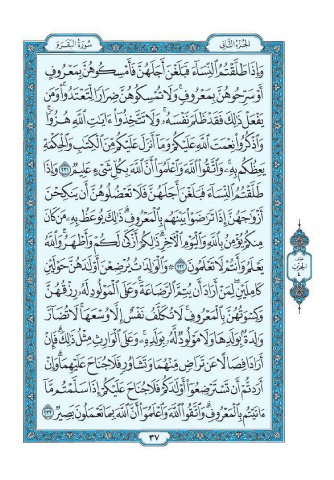 الجزء الثاني
سورة البقرة
وَإِذَا طَلَّقْتُمُ النِّسَاءَ فَبَلَغْنَ أَجَلَهُنَّ فَأَمْسِكُوهُنَّ بِمَعْرُوفٍ
أَوْ سَرِّحُوهُنَّ بِمَعْرُوفٍ وَلَا تُمْسِكُوهُنَّ ضِرَارًا لِتَعْتَدُوا وَمَنْ
يَفْعَلْ ذَلِكَ فَقَدْ ظَلَمَ نَفْسَهُ وَلَا تَتَّخِذُوا آيَاتِ اللَّهِ هُزُوًا
وَاذْكُرُوا نِعْمَتَ اللَّهِ عَلَيْكُمْ وَمَا أَنْزَلَ عَلَيْكُمْ مِنَ الْكِتَابِ وَالْحِكْمَةِ
يَعِظُكُمْ بِهِ وَاتَّقُوا اللَّهَ وَاعْلَمُوا أَنَّ اللَّهَ بِكُلِّ شَيْءٍ عَلِيمٌ ٢٣١ وَإِذَا
طَلَّقْتُمُ النِّسَاءَ فَبَلَغْنَ أَجَلَهُنَّ فَلَا تَعْضُلُوهُنَّ أَنْ يَنْكِحْنَ
أَزْوَاجَهُنَّ إِذَا تَرَاضَوْا بَيْنَهُمْ بِالْمَعْرُوفِ ذَلِكَ يُوعَظُ بِهِ مَنْ كَانَ
مِنْكُمْ يُؤْمِنُ بِاللَّهِ وَالْيَوْمِ الْآخِرِ ذَلِكُمْ أَزْكَى لَكُمْ وَأَطْهَرُ وَاللَّهُ
يَعْلَمُ وَأَنْتُمْ لَا تَعْلَمُونَ ٢٣٢ وَالْوَالِدَاتُ يُرْضِعْنَ أَوْلَادَهُنَّ حَوْلَيْنِ
كَامِلَيْنِ لِمَنْ أَرَادَ أَنْ يُتِمَّ الرَّضَاعَةَ وَعَلَى الْمَوْلُودِ لَهُ رِزْقُهُنَّ
وَكِسْوَتُهُنَّ بِالْمَعْرُوفِ لَا تُكَلَّفُ نَفْسٌ إِلَّا وُسْعَهَا لَا تُضَارَّ
وَالِدَةٌ بِوَلَدِهَا وَلَا مَوْلُودٌ لَهُ بِوَلَدِهِ وَعَلَى الْوَارِثِ مِثْلُ ذَلِكَ فَإِنْ
أَرَادَا فِصَالًا عَنْ تَرَاضٍ مِنْهُمَا وَتَشَاوُرٍ فَلَا جُنَاحَ عَلَيْهِمَا وَإِنْ
أَرَدْتُمْ أَنْ تَسْتَرْضِعُوا أَوْلَادَكُمْ فَلَا جُنَاحَ عَلَيْكُمْ إِذَا سَلَّمْتُمْ مَا
آتَيْتُمْ بِالْمَعْرُوفِ وَاتَّقُوا اللَّهَ وَاعْلَمُوا أَنَّ اللَّهَ بِمَا تَعْمَلُونَ بَصِيرٌ ٢٣٣
٣٧